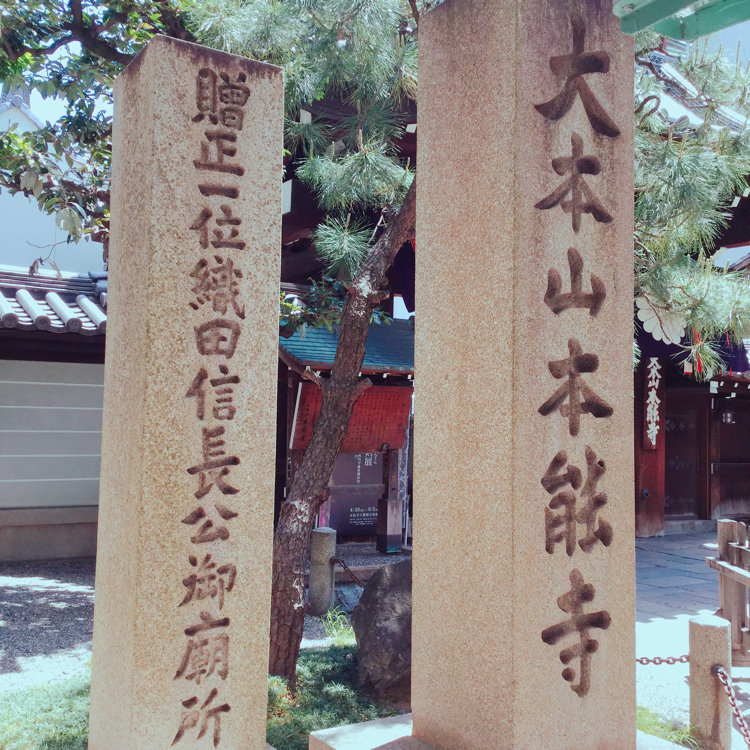 大本山本能寺
贈正一位織田信長公御廟所
大本山本能寺
展
4・28
6・3